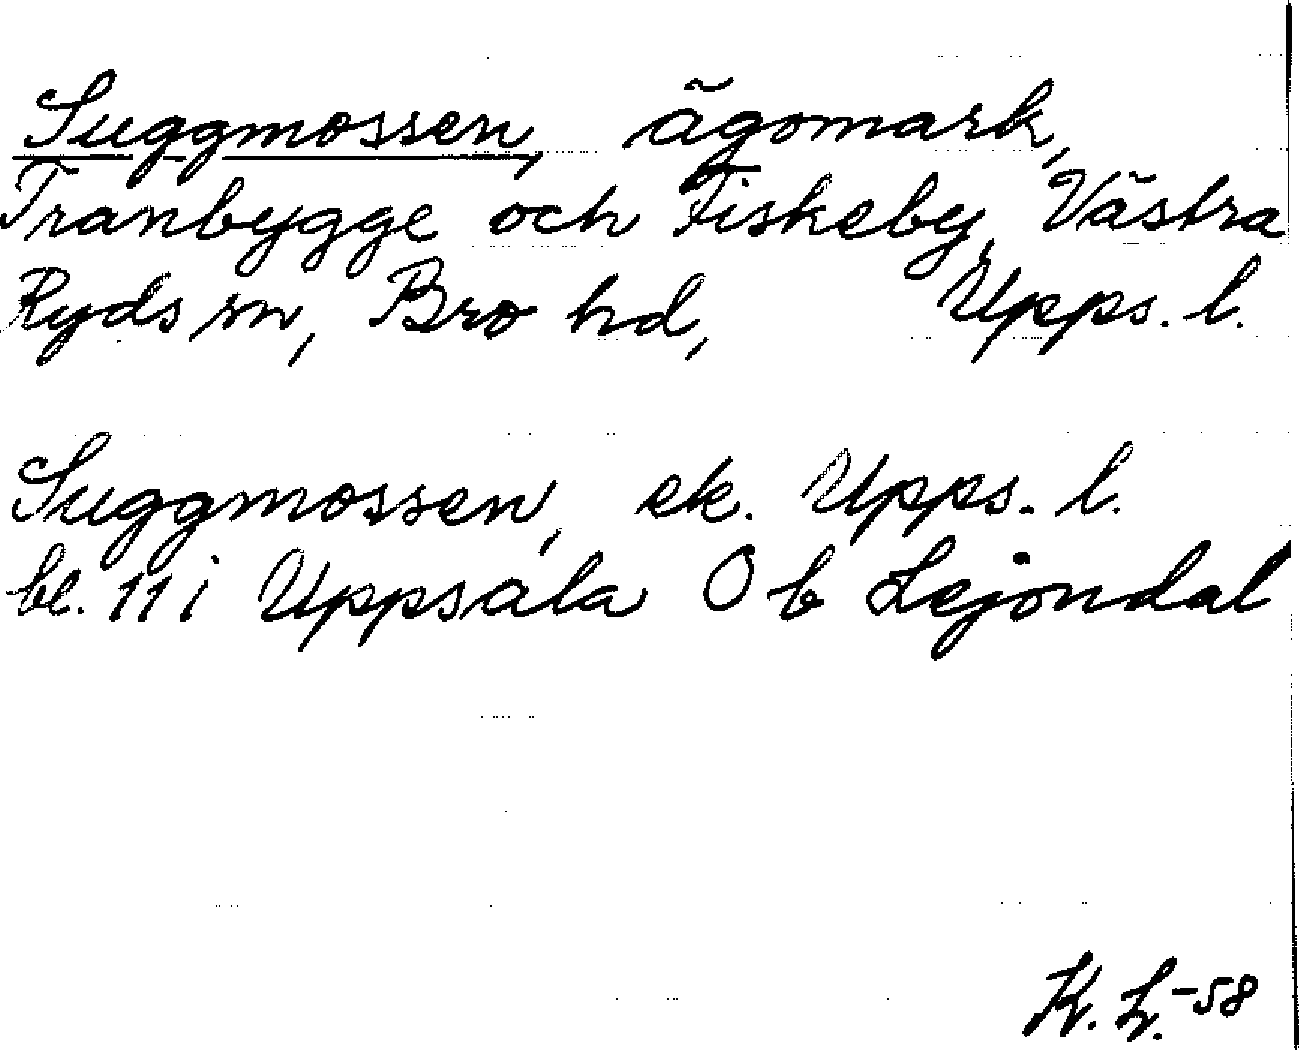 Suggmossen, ägomark,
Tranbygge och Fiskeby, Västra
Ryds sn, Bro hd, Upps. l.
Suggmossen, ek. Upps. l.
bl. 11 i Uppsala O b Lejondal
K. L. -58